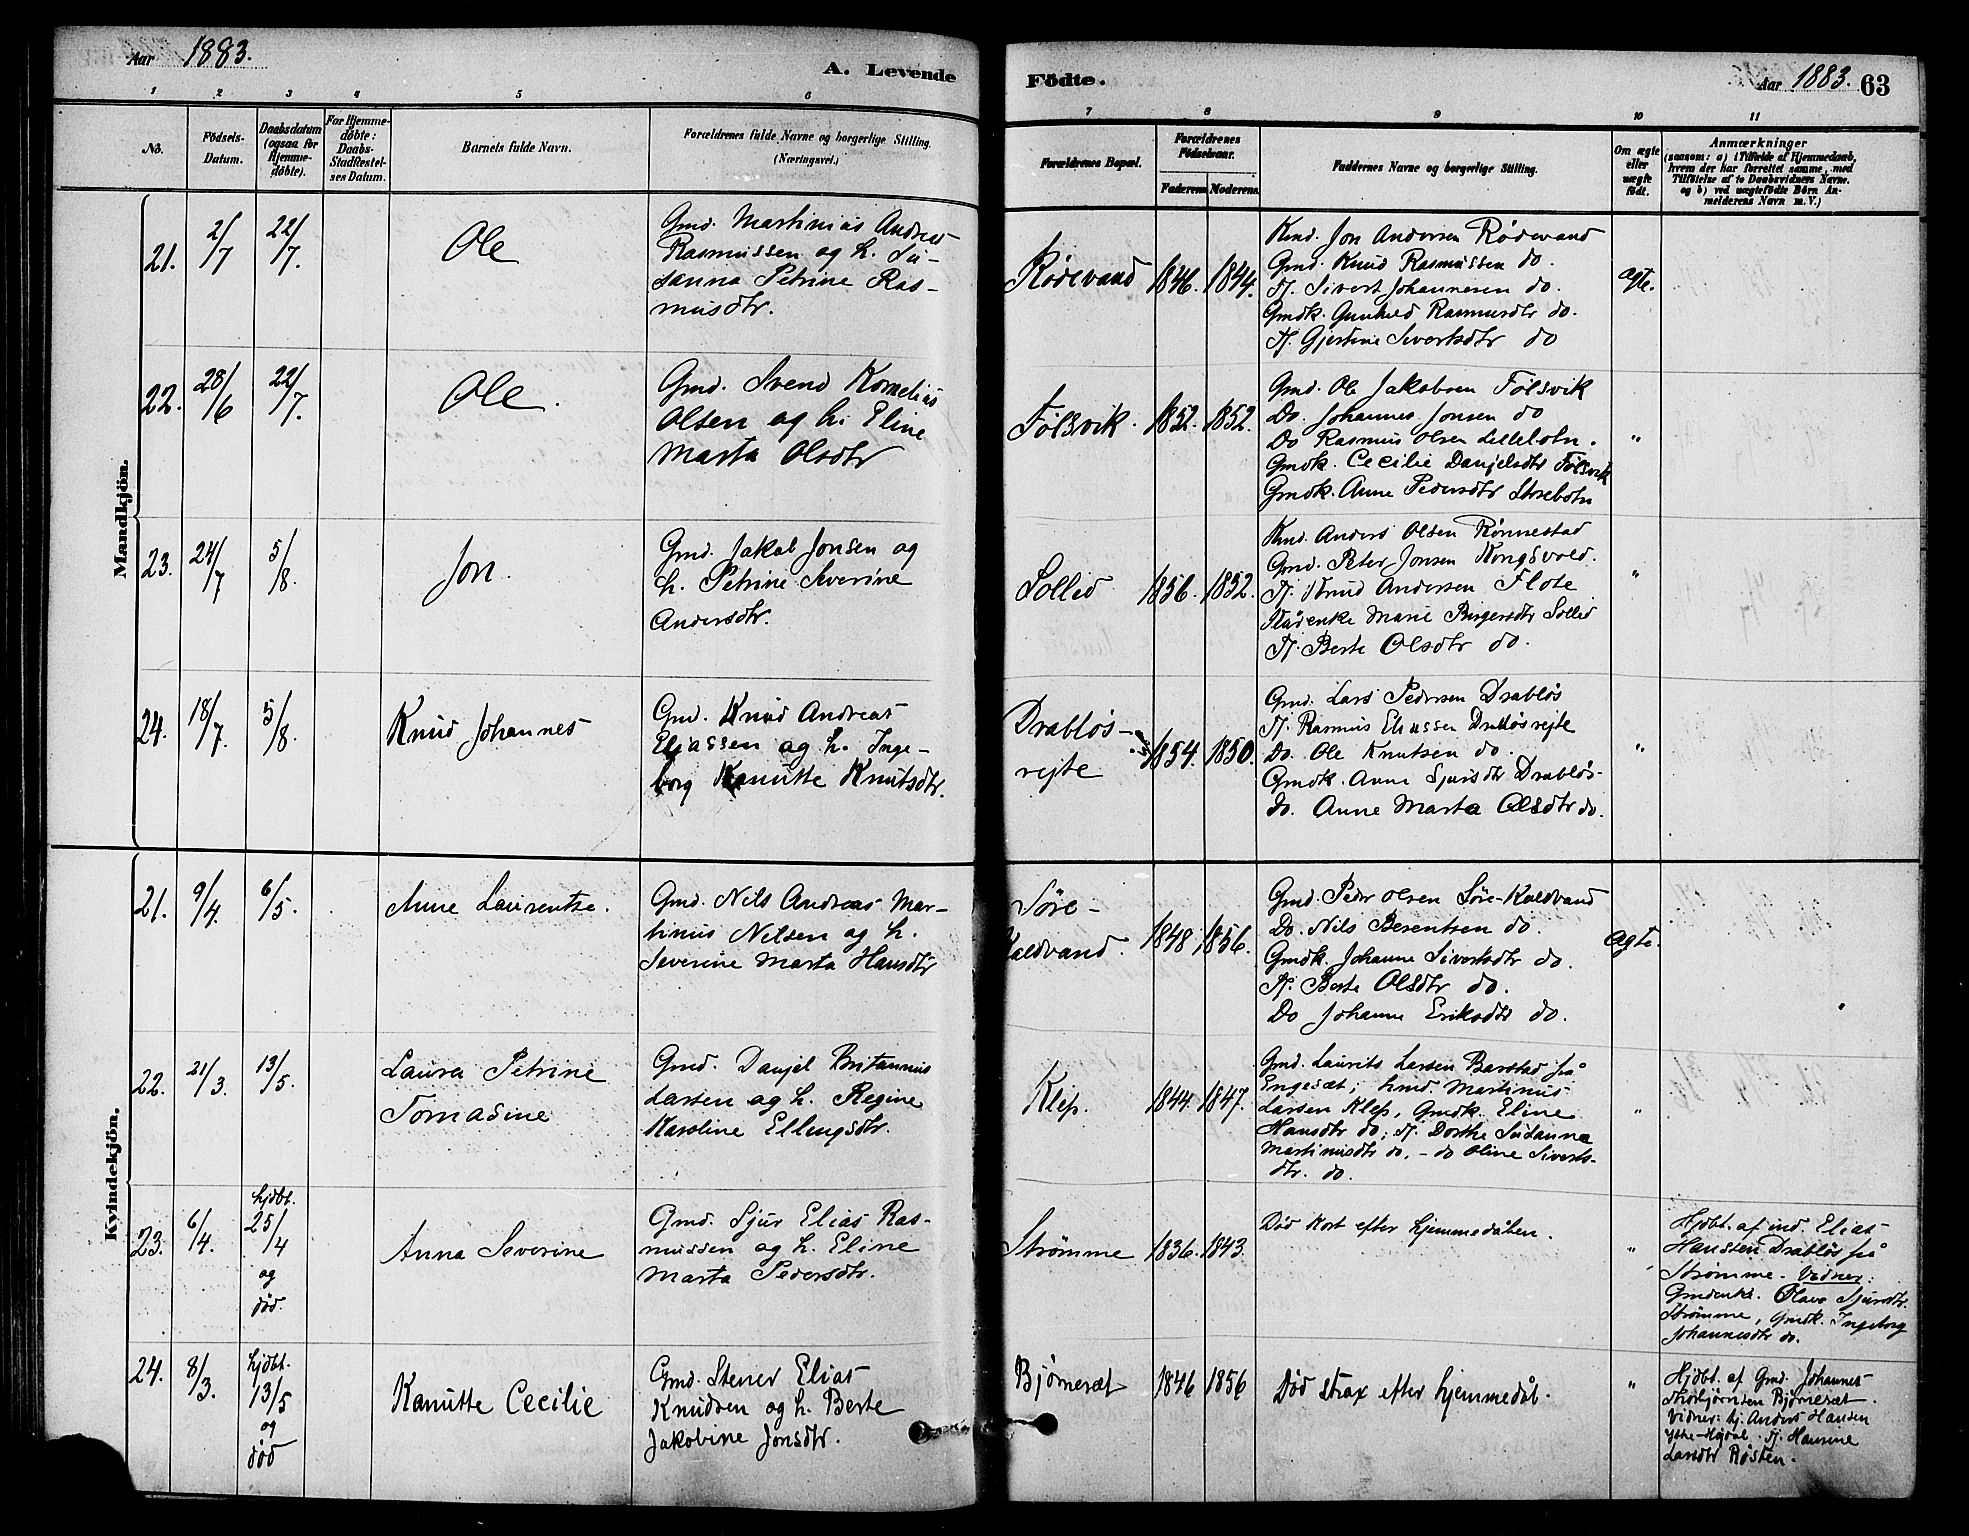 Aar 1883.
A. Levende
Födte.
Aar 1883. 63
1 2 3 4 5 6
7 8 9 10 11
No.
Födsels-
Datum.
Daabsdatum
(ogsaa for
Hjemme-
döbte).
For Hjemme-
döbte:
Daabs-
Stadfæstel-
ses Datum.
Barnets fulde Navn.
Forældrenes fulde Navne og borgerlige Stilling.
(Næringsvei.)
Forældrenes Bopæl.
Forældrenes
Födselsaar.
Faderens Moderens
Faddernes Navne og borgerlige Stilling.
Om ægte
eller
uægte
födt.
Anmærkninger
(saasom: a) i Tilfælde af Hjemmedaab,
hvem der har forrettet samme, med
Tilföielse af to Daabsvidners Navne.
og b) ved uægtefödte Börn An-
melderens Navn m. V.)
Mandkjön.
21.
2/7
22/7.
Ole
Gmd. Martinius Andreas
Rasmussen og h. Su-
sanna Petrine Ras-
musdtr.
Rödevand
1846.
1844.
Kmd. Jon Andersen Rödevand
Gmd. Knud Rasmussen do.
Tj. Sivert Johannesen do.
Gmdk. Gunhild Rasmusdtr do.
Tj. Gjertine Sivertsdtr do
ægte.
22.
28/6
22/7.
Ole.
Gmd. Svend Kornelius
Olsen og h. Eline
Marta Olsdtr
Fölsvik.
1852.
1852.
Gmd. Ole Jakobsen Fölsvik
Do. Johannes Jonsen do
Do Rasmus Olsen Lillebotn.
Gmdk. Cecilie Danjelsdtr Fölsvik
Gmdk. Anne Pedersdtr Storebotn
"
23.
24/7
5/8.
Jon.
Gmd. Jakob Jonsen og
h. Petrine Severine
Andersdtr.
Sollid
1856.
1852.
Kmd. Anders Olsen Rönnestad
Gmd. Peter Jonsen Kongsvold.
Tj. Knud Andersen Flote
Marie Birgersdtr Sollid
Tj. Berte Olsdtr do.
"
24.
18/7.
5/8.
Knud Johannes
Gmd. Knud Andreas
Eliassen og h. Inge-
borg Kanutte Knutsdtr.
Drablös-
rejte
1854.
1850.
Gmd. Lars Pedersen Drablös
Tj. Rasmus Eliassen Drablösrejte
Do. Ole Knutsen do.
Gmdk. Anne Sjursdtr Drablös-
do. Anne Marta Olsdtr do.
"
Kvindekjön.
21.
9/4.
6/5.
Anne Laurentse.
Gmd. Nils Andreas Mar-
tinus Nilsen og h.
Severine Marta Hansdtr
Söre-
Kaldvand.
1848
1856.
Gmd. Peder Olsen Söre-Kaldvand
Do. Nils Berentsen do.
Gmdk. Johanne Sivertsdtr do.
Tj. Berte Olsdtr do.
Do Johanne Eriksdtr do.
ægte.
22.
21/3.
13/5.
Laura Petrine
Tomasine
Gmd. Danjel Britannius
Larsen og h. Regine
Karoline Ellingsdtr.
Klep.
1844.
1847.
Gmd. Laurits Larsen Barstad på
Engesæt; hmd. Martinus
Larsen Klep, Gmdk. Eline
Hansdtr do; Tj. Dorthe Susanna
Martinusdtr do. - do Oline Siverts-
dtr. do.
"
23.
6/4.
hjdbt.
25/4
og
död.
Anna Severine
Gmd. Sjur Elias Ras-
mussen og h. Eline
Marta Pedersdtr.
Strömme
1836.
1843.
Död kort efter hjemmedåben.
"
Hjdbt. af ind Elias
Hansen Drablös på
Strömme. Vidner:
Gmdenke. Olave Sjursdtr.
Strömme, Gmdk. Ingeborg
Johannesdtr do.
24.
8/3.
hjdbt.
13/5
og
död
Kanutte Cecilie
Gmd. Stener Elias
Knudsen og h. Berte
Jakobine Jonsdtr.
Björnesæt
1846
1856
Död strax efter hjemmedåb.
"
Hjdbt. af Gmd. Johannes
Thorbjörnsen Björnesæt.
Vidner: Anders Hansen
Tj. Hansine
Larsdtr Rösten.